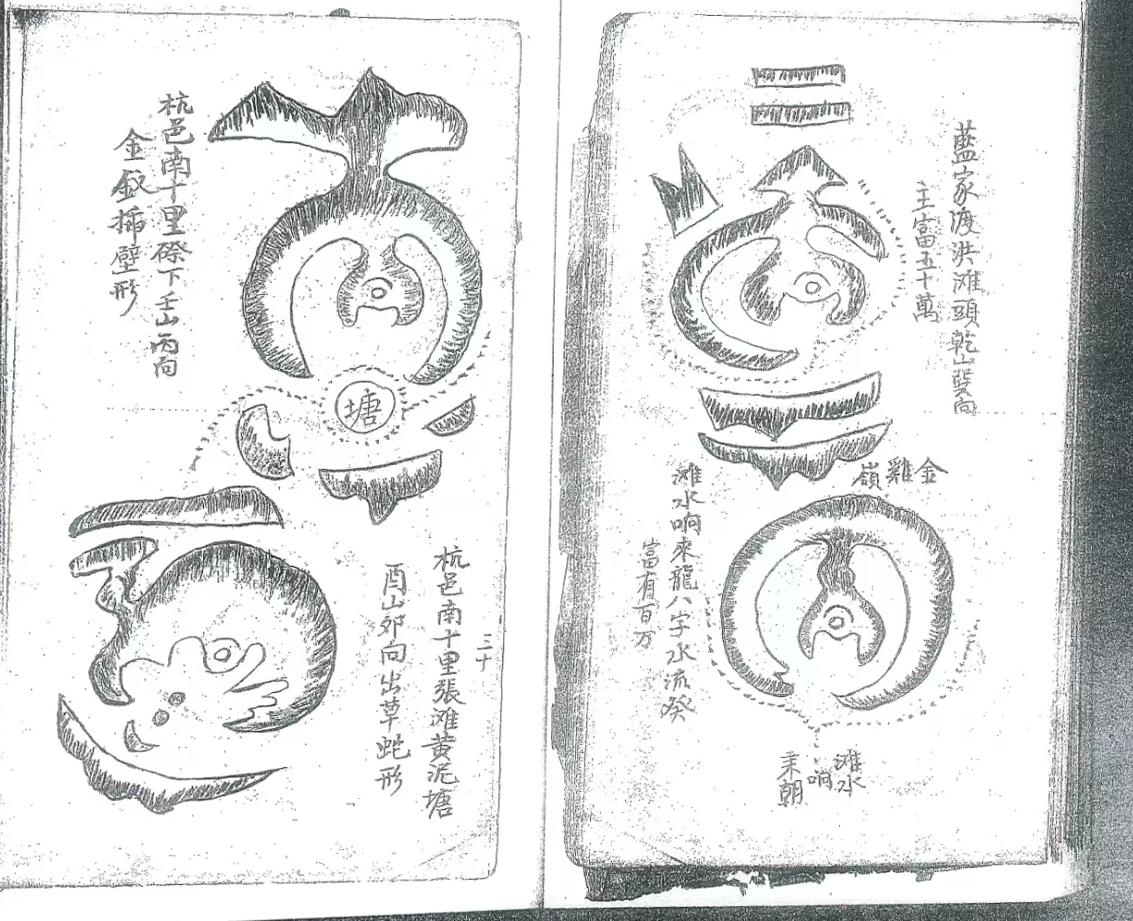 藍家渡洪滩頭乾山巽向
主富五十萬
金雞嶺
滩水响來龍八字水流癸
富有百万
滩水
响
来朝
杭邑南十里磜下壬山丙向
金釵揷壁形
塘
三十
杭邑南十里張滩黄泥塘
酉山卯向出草蛇形